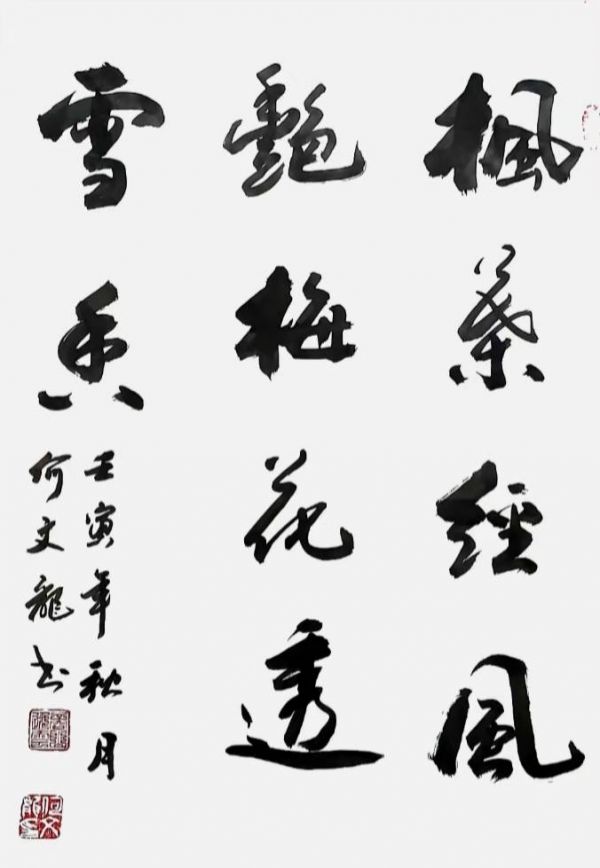 楓葉經風
艷梅花透
雪香
壬寅年秋月
何文龍书